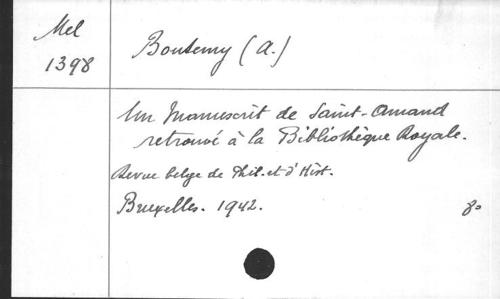 Mel
1398
Boutemy (A.)
Un Manuscrit de Saint-Amand
retrouvé à la Bibliothèque Royale.
Revue belge de Phil. et d'Hist.
Bruxelles. 1942.
8°